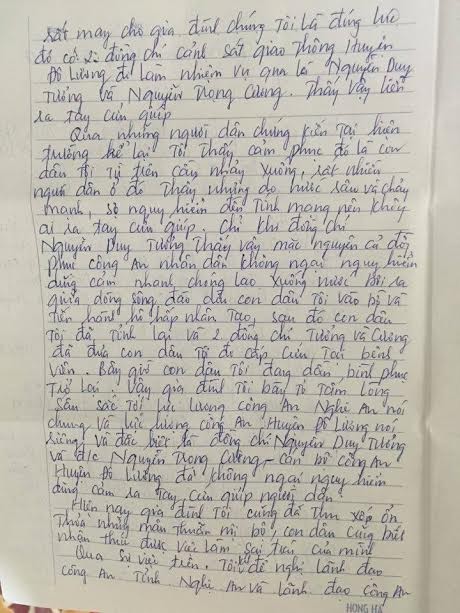 rất may cho gia đình chúng Tôi là đúng lúc
đó có 2 đồng chí cảnh sát giao Thông Huyện
Đô Lương đi làm nhiệm vụ qua là Nguyễn Duy
Tưởng và Nguyễn Trọng Cương. Thấy vậy liền
ra tay cứu giúp
Qua những người dân chứng kiến Tại hiện
trường kể lại Tôi Thấy cảm phục đó là con
dâu Tôi Tự tiên cầu nhảy xuống, rất nhiên
người dân ở đó Thấy nhưng do nước sâu và chảy
mạnh, sợ nguy hiểm đến Tính mạng nên không
ai ra tay cứu giúp. Chỉ khi đồng chí
Nguyễn Duy Tưởng Thấy vậy mặc nguyên cả đồ
phục công An nhân dân không ngại nguy hiểm
dũng cảm nhanh chóng lao xuống nước Bơi ra
giữa dòng sông đào đưa con dâu Tôi vào bờ và
tiến hành hô hấp nhân Tạo, sau đó con dâu
Tôi đã Tỉnh lại và 2 đồng chí Tưởng và Cương
đã đưa con dâu Tôi đi cấp cứu Tại bệnh
viện. Bây giờ con dâu Tôi đang dần bình phục
Trở lại. Vậy gia đình Tôi bày tỏ Tấm lòng
sâu sắc Tới lực lượng công An Nghệ An nói
chung và lực lượng công An Huyện Đô Lương nói
riêng, và đặc biệt là đồng chí Nguyễn Duy Tưởng
và đ/c Nguyễn Trọng Cương - cán bộ công An
Huyện Đô Lương đã không ngại nguy hiểm
dũng cảm ra tay cứu giúp người dân.
Hiện nay gia đình Tôi cũng đã Thu xếp ổn
Thỏa những mâu Thuẫn nội bộ, con dâu cũng biết
nhận thức được việc làm sai trái của mình
Qua sự việc trên. Tôi đề nghị lãnh đạo
công An Tỉnh Nghệ An và lãnh đạo công An
HONG HÀ